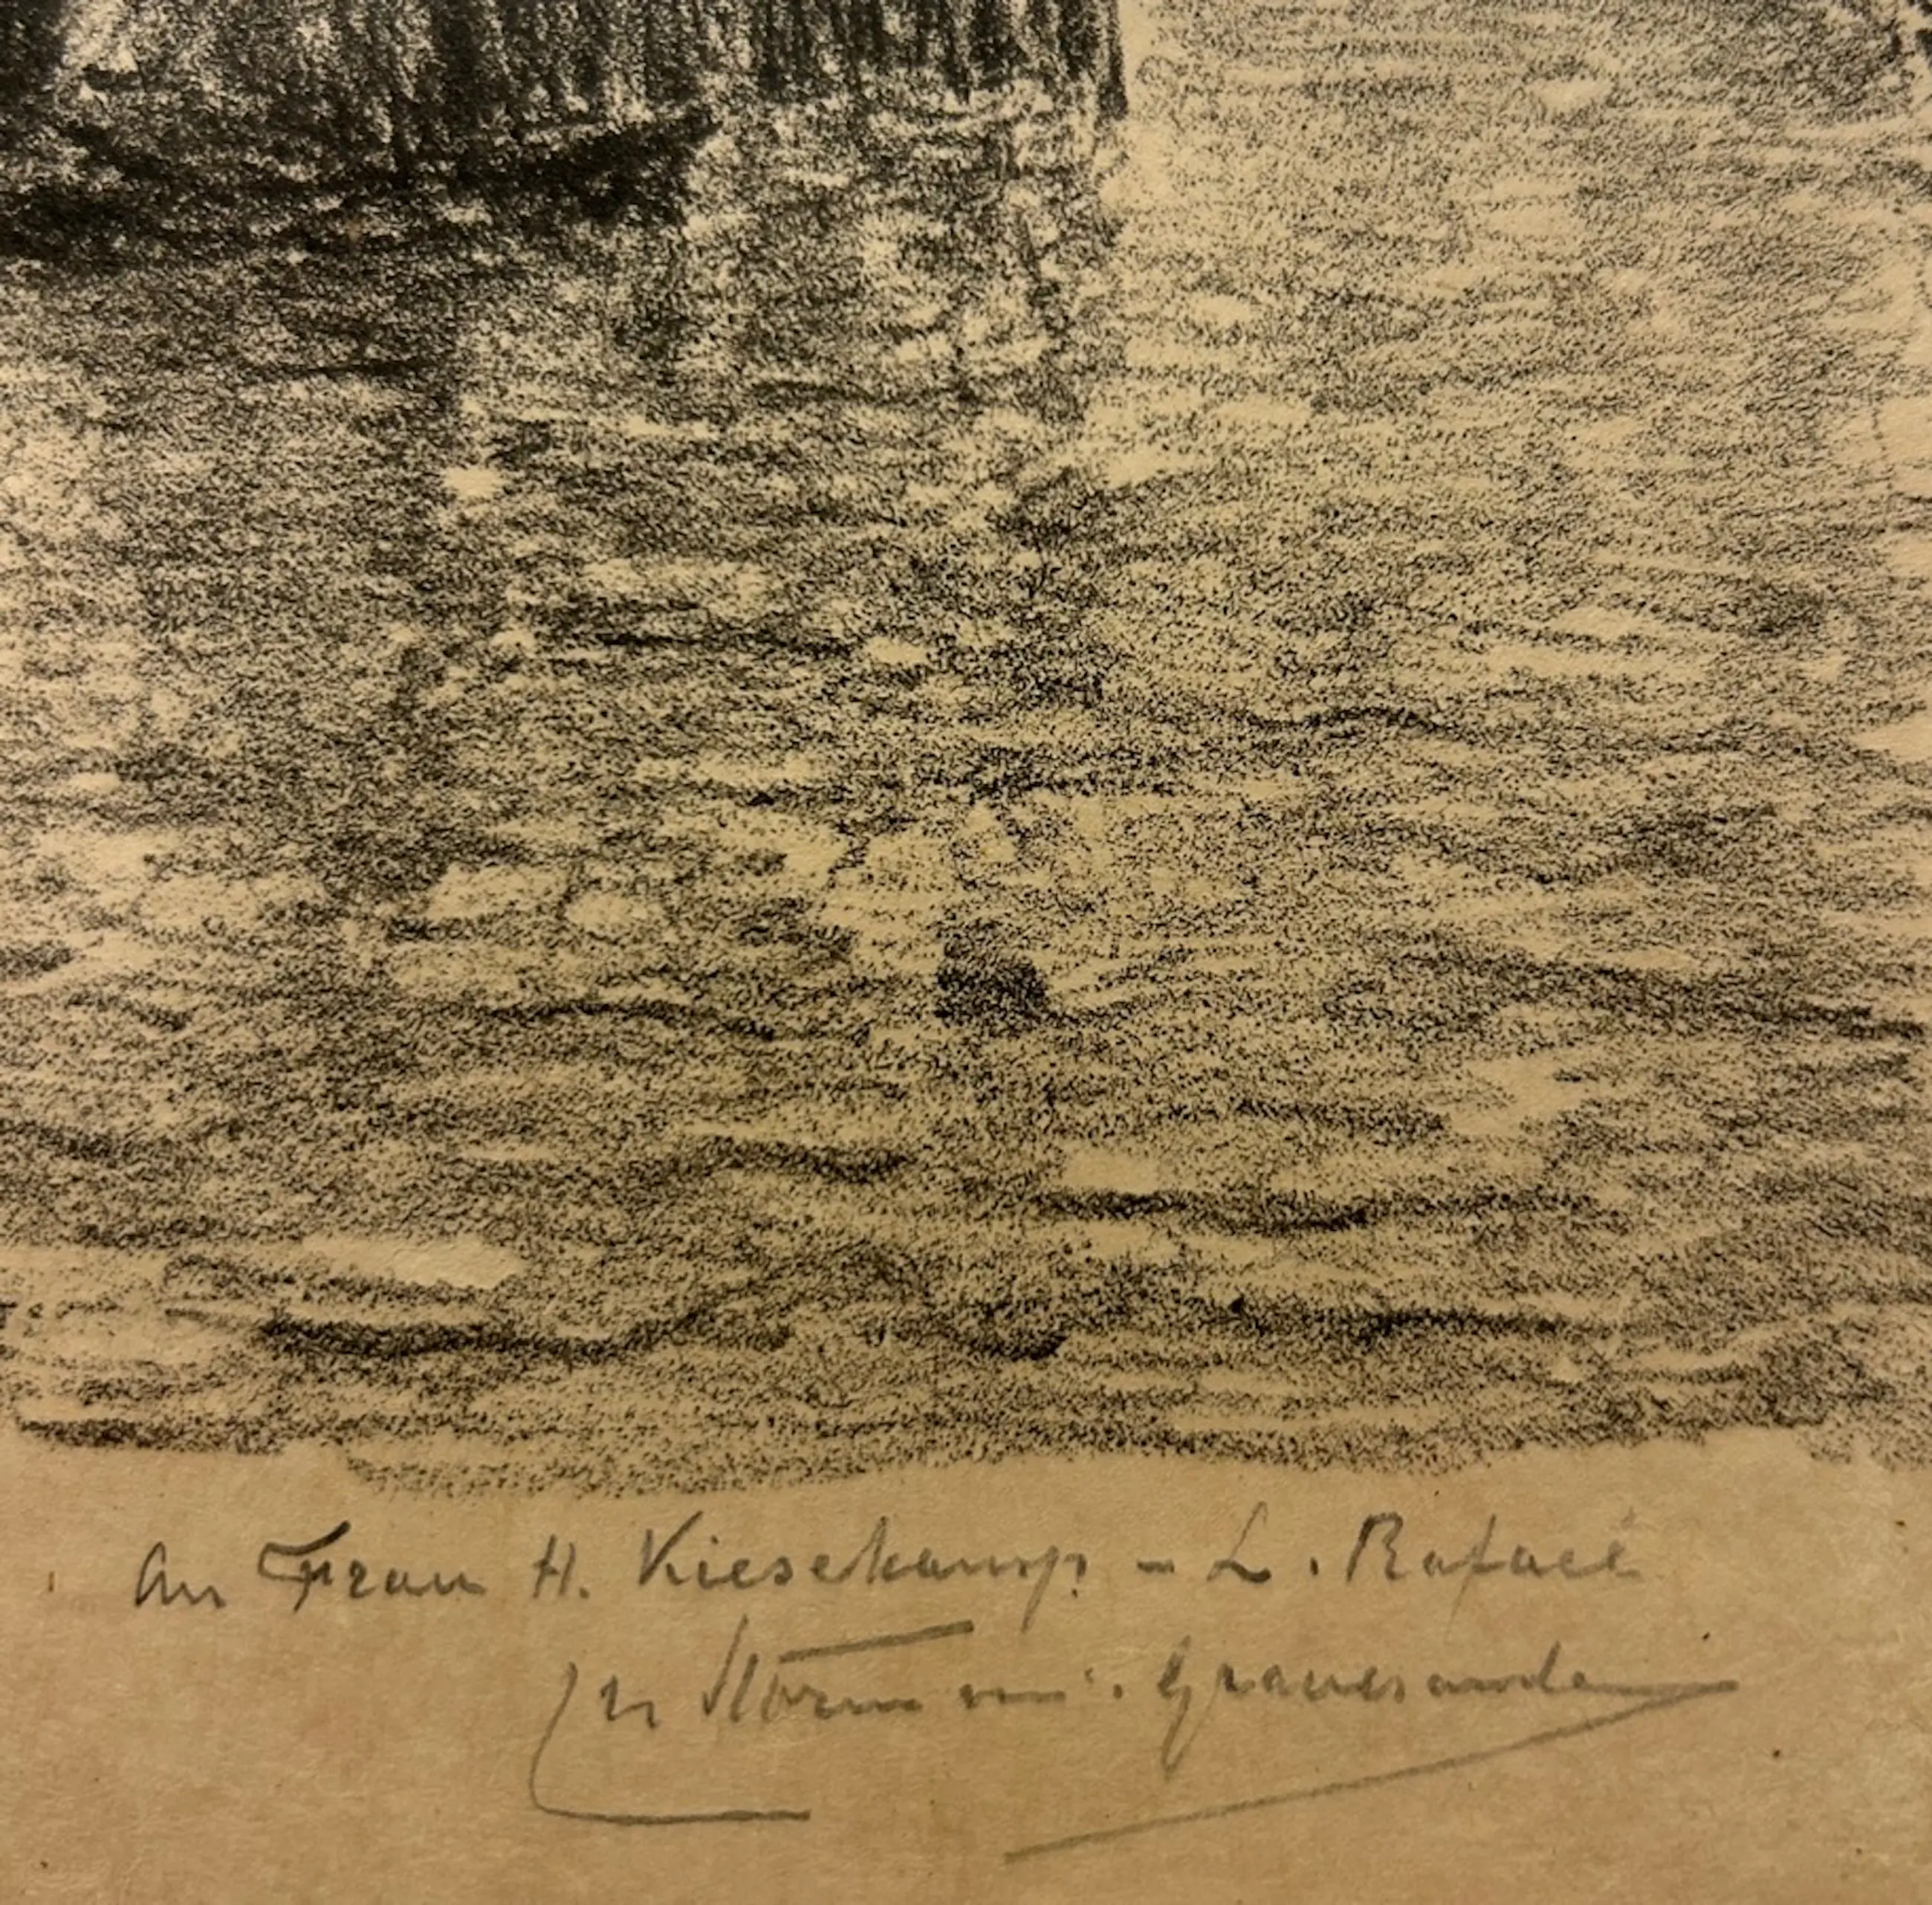 An Frau H. Kiesekamp - L. Rafael
Storm v. 's Gravesande